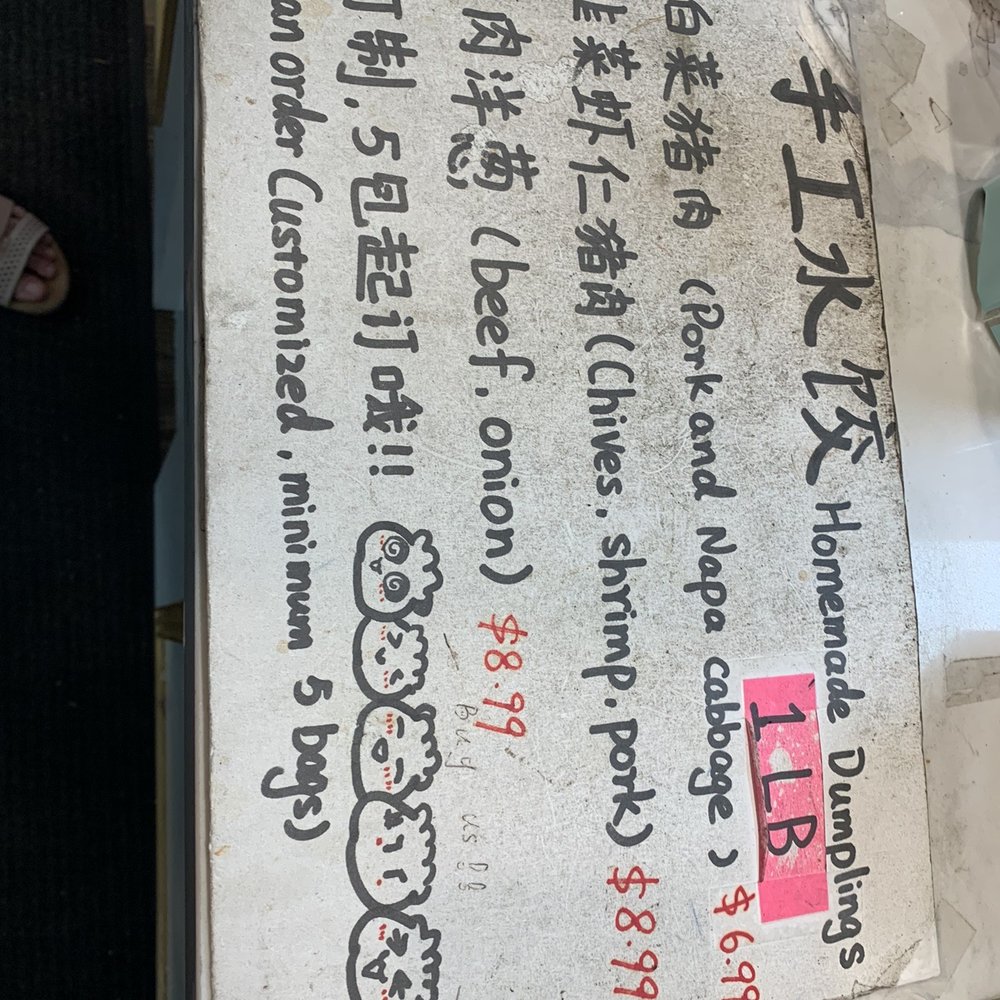 手工水饺 Homemade Dumplings
1 LB
白菜猪肉 (Pork and Napa cabbage) $6.99
韭菜虾仁猪肉 (Chives, shrimp, pork) $8.99
肉洋葱 (beef, onion) $8.99
Buy us !!
订制, 5包起订哦!!
an order Customized, minimum 5 bags)